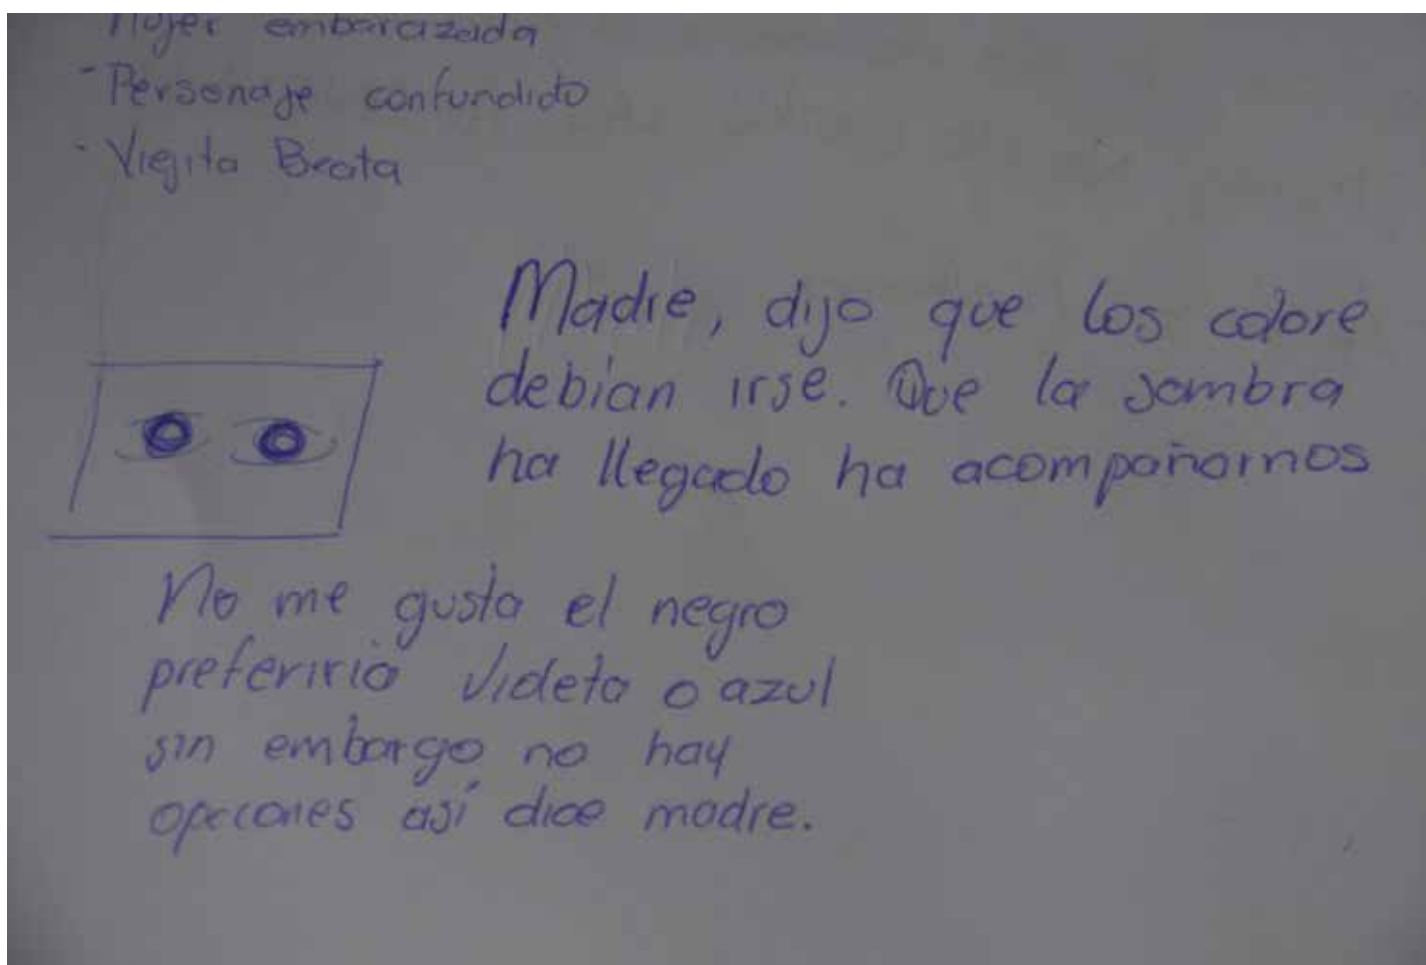 Mujer embarazada
- Personaje confundido
- Viejita Beata
Madre, dijo que los colore
debían irse. Que la sombra
ha llegado ha acompañarnos
No me gusta el negro
preferiría violeta o azul
sin embargo no hay
opciones así dice madre.